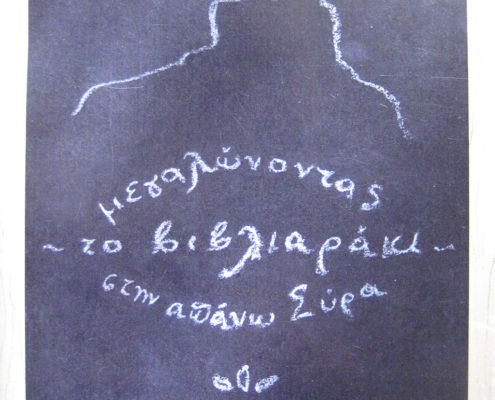 μεγαλώνοντας
~ το βιβλιαράκι ~
στην απάνω Σύρα